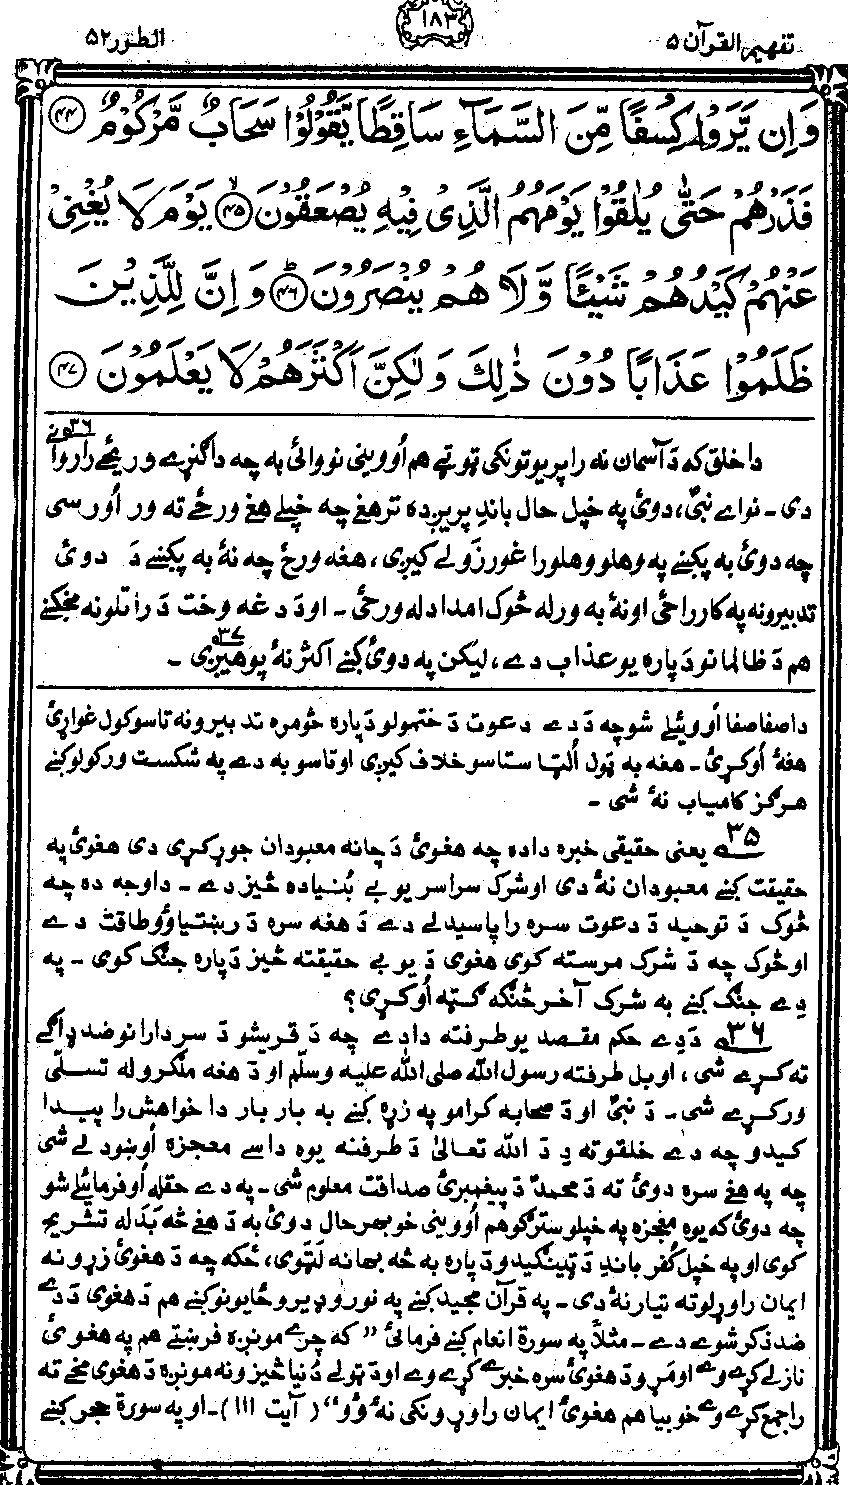 تفهیم القرآن ۵
۱۸۳
الطور ۵۲
وَاِن يَّرَوْا كِسْفًا مِّنَ السَّمَآءِ سَاقِطًا يَّقُوْلُوْا سَحَابٌ مَّرْكُوْمٌ ۴۴
فَذَرْهُمْ حَتّٰى يُلٰقُوْا يَوْمَهُمُ الَّذِىْ فِيْهِ يُصْعَقُوْنَ ۴۵ يَوْمَ لَا يُغْنِىْ
عَنْهُمْ كَيْدُهُمْ شَيْـًٔا وَّلَا هُمْ يُنْصَرُوْنَ ۴۶ وَاِنَّ لِلَّذِيْنَ
ظَلَمُوْا عَذَابًا دُوْنَ ذٰلِكَ وَلٰكِنَّ اَكْثَرَهُمْ لَا يَعْلَمُوْنَ ۴۷
دا خلق که دَ آسمان نه راپریوتونکی ټوټې هم اُووینی نو وائی به چه دا ګنړے وریځے راروانے ۳۶
دی ـ نو اے نبیؐ، دوئ په خپل حال باندِ پریږده تر هغې چه خپلے هغې ورځے ته ور اُورسی
چه دوئ به پکښے په وهلو وهلو را غورزَولے کیږی، هغه ورځ چه نۀ به پکښے دَ دوئ
تدبیرونه په کار راځی او نۀ به ورله څوک امداد له ورځی ـ او دَ دغه وخت دَ راتلو نه مخکښے
هم دَ ظالمانو دَپاره یو عذاب دے، لیکن په دوئ کښے اکثر نۀ پوهیږی ۳۷ ـ
دا صفا صفا اُووئیلے شو چه دَ دے دعوت دَ ختمولو دَپاره څومره تدبیرونه تاسو کول غواړئ
هغه اُوکړئ ـ هغه به ټول اُلټا ستاسو خلاف کیږی او تاسو به دے په شکست ورکولو کښے
هرګز کامیاب نۀ شی ـ
۳۵ یعنی حقیقی خبره داده چه هغوئ دَ چا نه معبودان جوړ کړی دی هغوئ په
حقیقت کښے معبودان نۀ دی او شرک سراسر یو بے بُنیاده څیز دے ـ داوجه ده چه
څوک دَ توحید دَ دعوت سره راپاسیدلے دے دَ هغه سره دَ رښتیاؤ و طاقت دے
او څوک چه دَ شرک مرسته کوی هغوی دَ یو بے حقیقته څیز دَپاره جنګ کوی ـ په
دِے جنګ کښے به شرک آخر څنګه ګټه اُوکړی؟
۳۶ دَدِے حکم مقصد یو طرفته دادے چه دَ قریشو دَ سردارانو ضد ډاګے
ته کړے شی، او بل طرفته رسول الله صلی الله علیه وسلّم او دَ هغه ملګرو له تسلّی
ورکړے شی ـ دَ نبیؐ او دَ صحابه کرامو په زړه کښے به بار بار دا خواهش را پیدا
کیدو چه دے خلقو ته دِ دَ الله تعالیٰ دَ طرفنه یوه داسے معجزه اُوښودلے شی
چه په هغے سره دوئ ته دَ محمدؐ دَ پیغمبرئ صداقت معلوم شی ـ په دے حقله اُوفرمائیلے شو
چه دوئ که یوه معجزه په خپلو سترګو هم اُووینی خو بهرحال دوئ به دَ هغے څه بَدَ له تشریح
کوی او په خپل کُفر باندِ دَ ټینګیدو دَپاره به څه بهانه لټَوی، ځکه چه دَ هغوئ زړونه
ایمان راوړلو ته تیار نۀ دی ـ په قرآن مجید کښے په نورو ډیرو ځایونو کښے هم دَ هغوی دَ دے
ضد ذکر شوے دے ـ مثلاً په سورة انعام کښے فرمائی ”که چرے مونږه فرښتے هم په هغوئ
نازلے کړے وے او مَړو دَ هغوئ سره خبرے کړے وے او دَ ټولے دُنیا څیزونه مونږه دَ هغوی مخے ته
راجمع کړے وے خو بیا هم هغوئ ایمان راوړونکی نۀ وُو“ (آیت ۱۱۱) ـ او په سورة حجر کښے